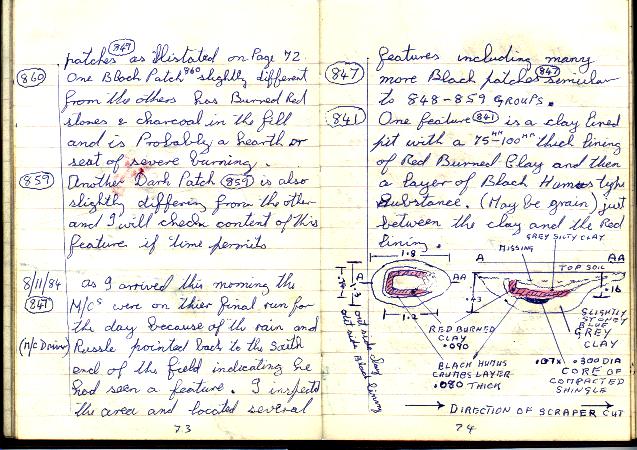 849
patches as Illistated on Page 72
860
One Black Patch 860 slightly different
from the others has Burned Red
stones & charcoal in the fill
and is Probably a hearth or
seat of severe burning.
859
Another Dark Patch 859 is also
slightly differing from the other
and I will check content of this
feature if time permits
8/11/84
as I arrived this morning the
847
M/Cs were on thier final run for
the day because of the rain and
(M/C Driver)
Russle pointed back to the South
end of the field indicating he
had seen a feature. I inspected
the area and located several
73
features including many
847
more Black patches 847 simular
to 848-859 GROUPS.
841
One feature 841 is a clay lined
pit with a 75-100 MM thick lining
of Red Burned Clay and then
a layer of Black Humus type
Substance. (May be grain) just
between the clay and the Red
lining.
GREY SILTY CLAY
MISSING
1.8
A
AA
A
AA
TOP SOIL
1.3
.43
.16
1.2
out side clay
out side Black lining
RED BURNED
CLAY
.090
BLACK HUMUS
LAYER
.080 THICK
SLIGHTLY
STONEY
BLUE
GREY
CLAY
.300 DIA
CORE OF
COMPACTED
SHINGLE
DIRECTION OF SCRAPER CUT
74